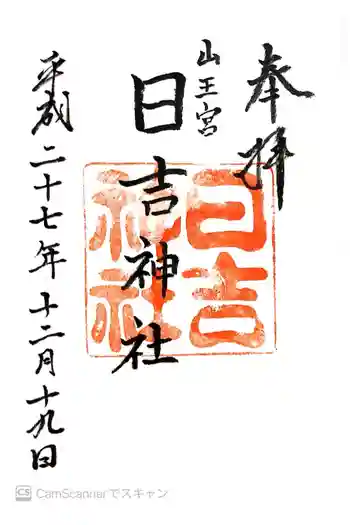 奉拝
山王宮
日吉神社
日吉
神社
平成二十七年十二月十九日
CS CamScannerでスキャン